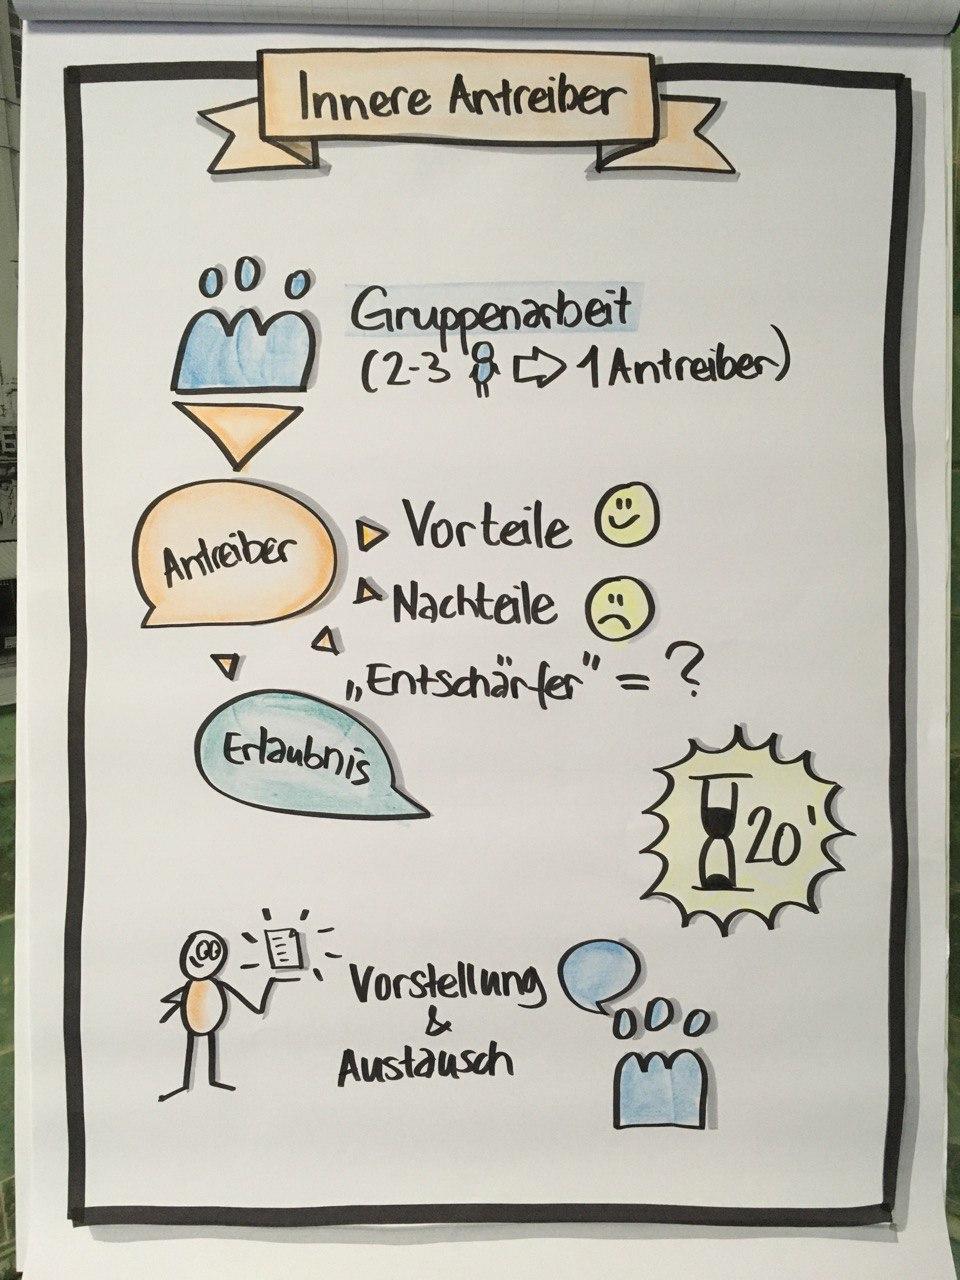 Innere Antreiber
Gruppenarbeit
(2-3 1 Antreiber)
Antreiber
Vorteile
Nachteile
„Entschärfer" = ?
Erlaubnis
20'
Vorstellung
&
Austausch